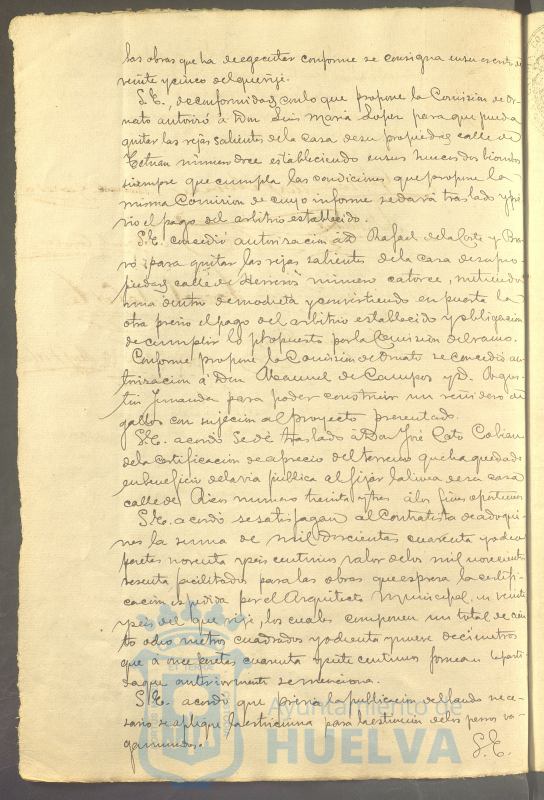 las obras que ha de egecutar conforme se consigna en su escrito de
veinte y cinco del que rije.
S.E., de conformidad con lo que propone la Comision de Or-
nato autorizó á Don Luis Maria Lopez para que pueda
quitar las rejas salientes de la casa de su propiedad calle de
Tetuan número doce estableciendo en sus huecos
siempre que cumpla las condiciones que propone la
misma Comision de cuyo informe se dará traslado y pré-
vio el pago del arbitrio establecido.
S.E. concedió autorizacion á D. Rafael de la Corte y Bra-
vo para quitar las rejas salientes de la casa de su pro-
piedad calle de Herreros número catorce, metiendo
una dentro de mocheta y convirtiendo en puerta la
otra previo el pago del arbitrio establecido y obligacion
de cumplir lo propuesto por la Comision del ramo.
Conforme propone la Comision de Ornato se concedió au-
torizacion á Don Manuel de Campos y D. Agus-
tin para poder construir un reñidero de
gallos con sujecion al proyecto presentado.
S.E. acordó se dé traslado á Don José Coto Cobian
de la certificacion de aprecio del terreno que ha quedado
en beneficio de la via pública al fijar la linea de su casa
calle de Rico número treinta y tres á los fines oportunos
S.E. acordó se satisfagan al Contratista de adoqui-
nes la suma de mil doscientas cuarenta y ocho
pesetas noventa y seis centimos valor de los mil novecientos
sesenta facilitados para las obras que espresa la certifi-
cacion espedida por el Arquitecto Municipal en veinte
y seis del que rije, los cuales componen un total de cien-
to ocho metros cuadrados y ochenta y nueve decimetros
que á once pesetas cuarenta y siete centimos forman la parti-
da que anteriormente se menciona.
S.E. acordó que previa la publicacion del bando nece-
sario se aplique la estricnina para la estincion de los perros va-
gamundos.
S.E.
Ayuntamiento de
HUELVA